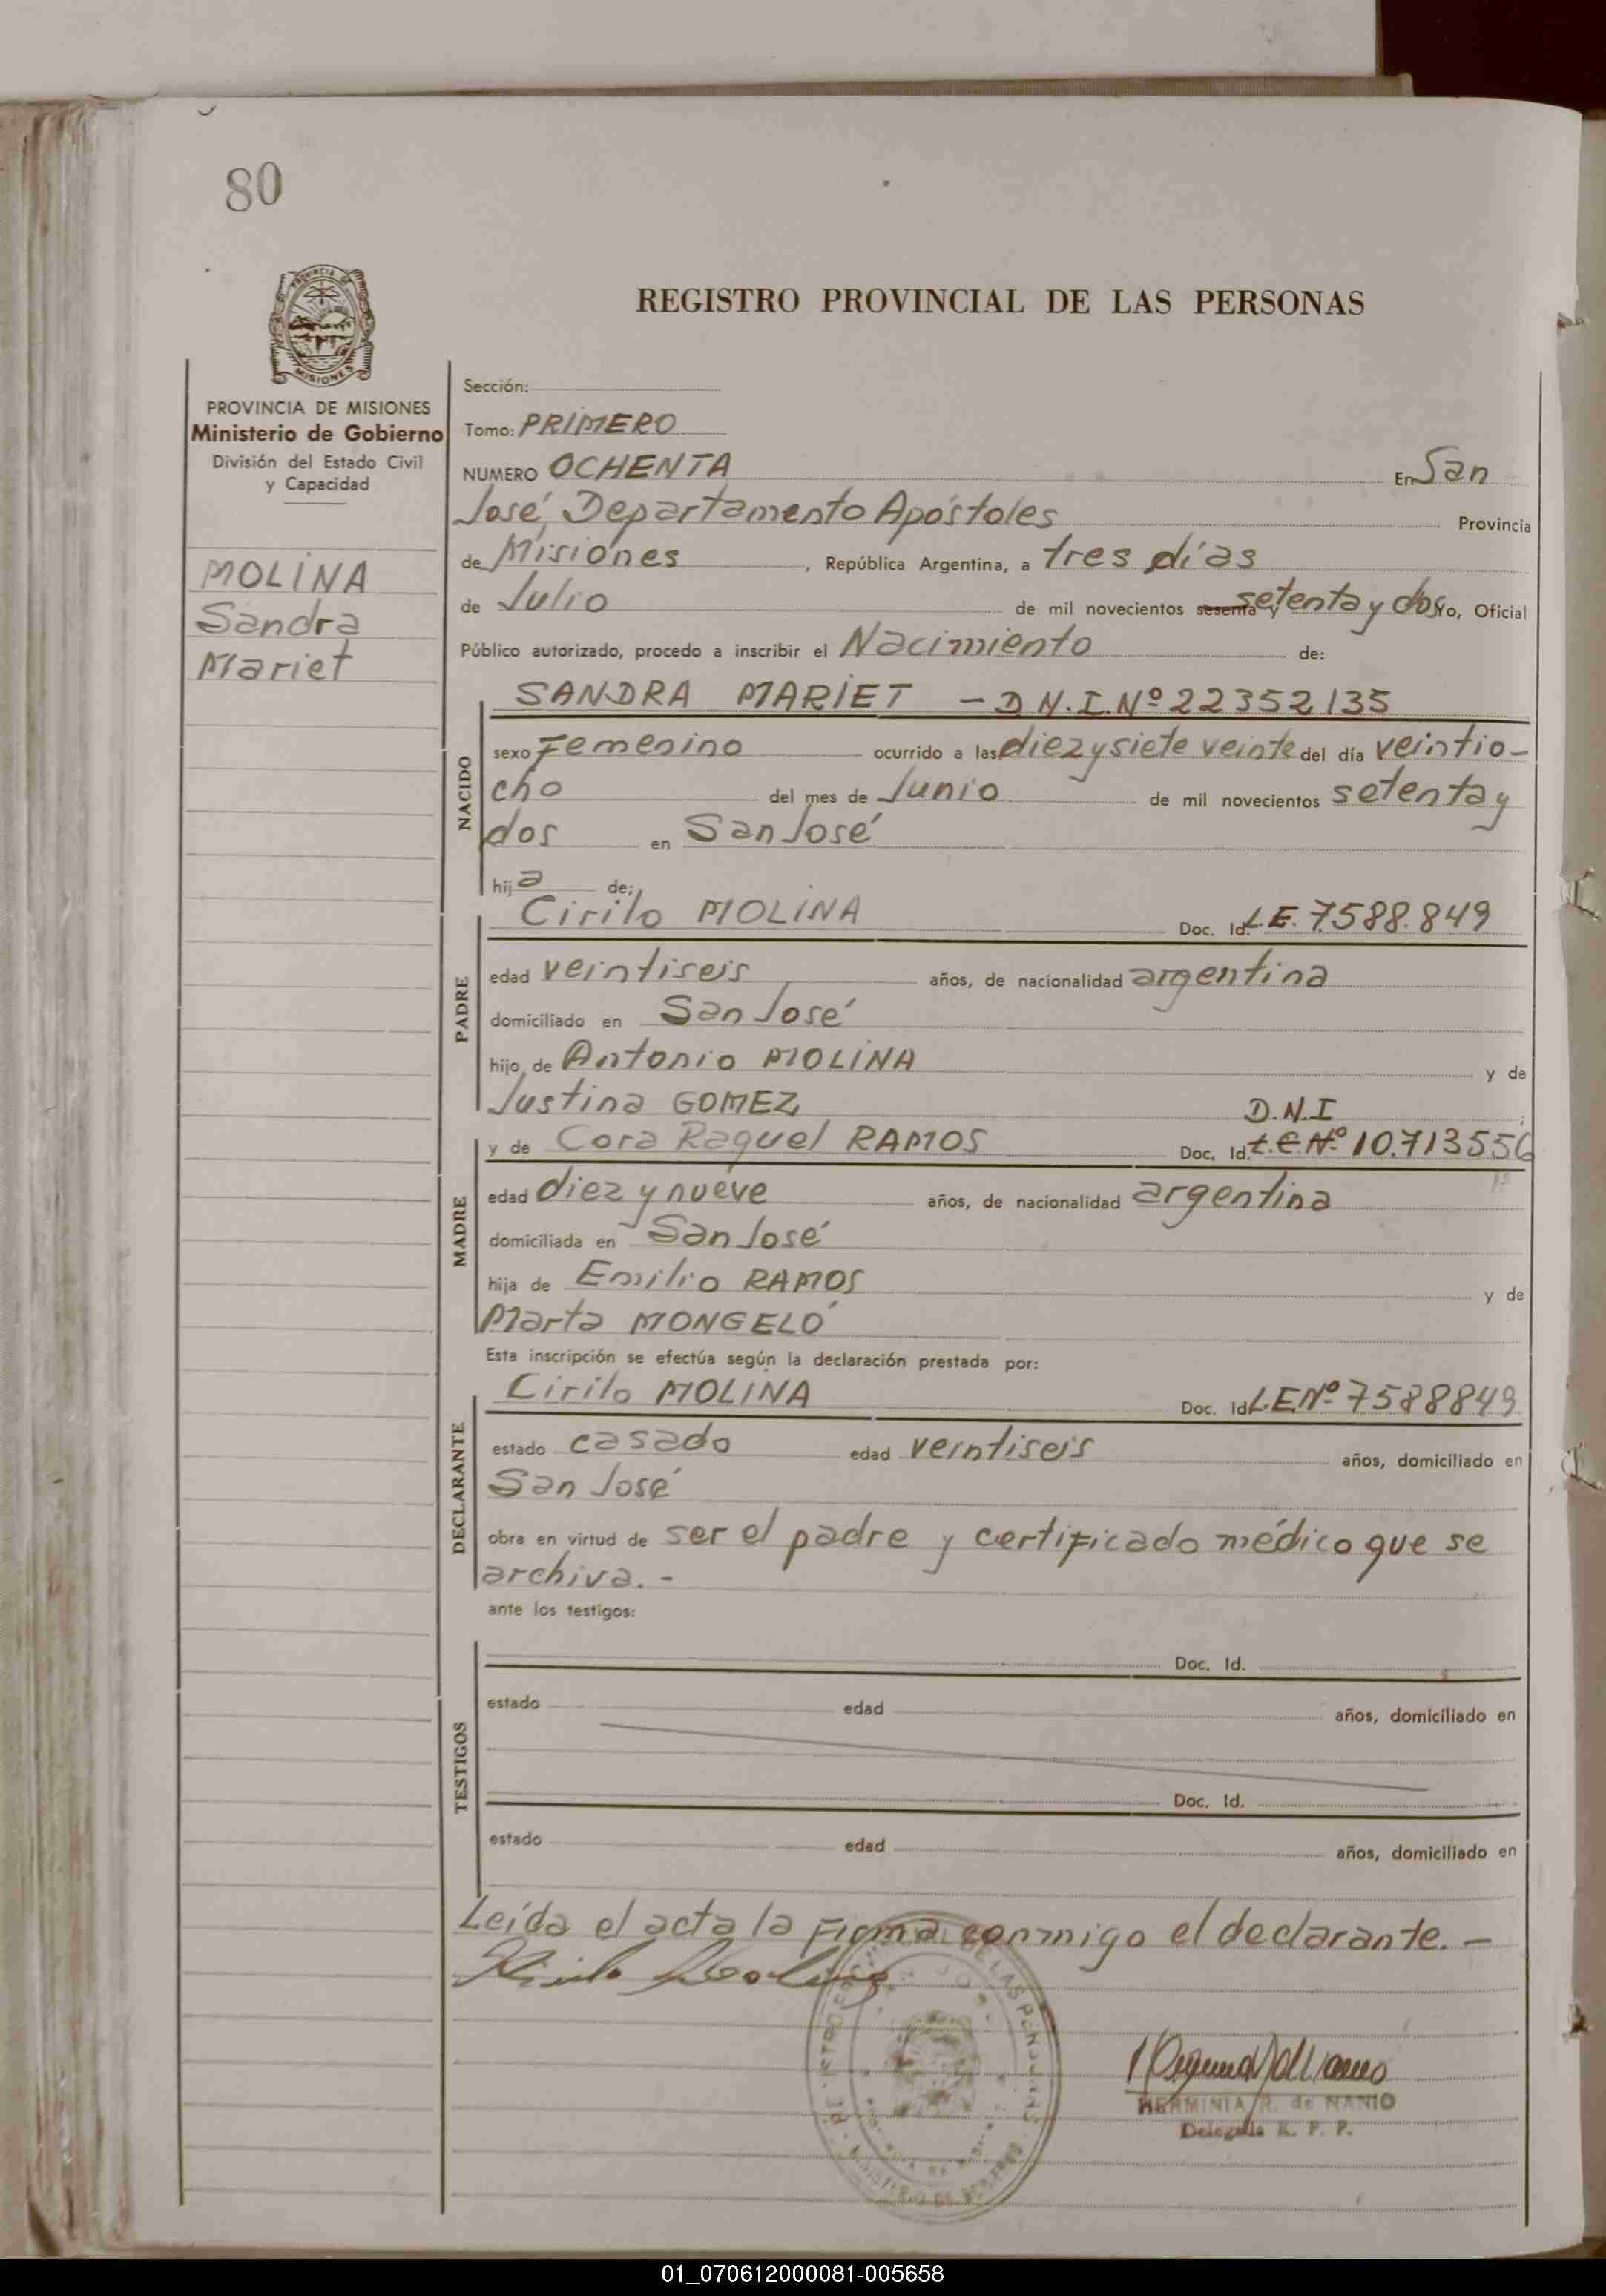 80
PROVINCIA DE MISIONES
REGISTRO PROVINCIAL DE LAS PERSONAS
PROVINCIA DE MISIONES
Ministerio de Gobierno
División del Estado Civil
y Capacidad
MOLINA
Sandra
Mariet
Sección:
Tomo: PRIMERO
NUMERO OCHENTA En San
José, Departamento Apóstoles Provincia
de Misiones, República Argentina, a tres días
de Julio de mil novecientos sesenta y setenta y dos Yo, Oficial
Público autorizado, procedo a inscribir el Nacimiento de:
NACIDO
SANDRA MARIET - D.N.I. Nº 22352135
sexo Femenino ocurrido a las diez y siete veinte del día veintio-
cho del mes de Junio de mil novecientos setenta y
dos en San José
hija de:
PADRE
Cirilo MOLINA Doc. Id. L.E. 7.588.849
edad veintiseis años, de nacionalidad argentina
domiciliado en San José
hijo de Antonio MOLINA y de
Justina GOMEZ
D.N.I
MADRE
y de Cora Raquel RAMOS Doc. Id. L.C. Nº 10.713556
edad diez y nueve años, de nacionalidad argentina
domiciliada en San José
hija de Emilio RAMOS y de
Marta MONGELÓ
Esta inscripción se efectúa según la declaración prestada por:
DECLARANTE
Cirilo MOLINA Doc. Id. L.E. Nº 7588849
estado casado edad veintiseis años, domiciliado en
San José
obra en virtud de ser el padre y certificado médico que se
archiva. -
ante los testigos:
TESTIGOS
Doc. Id.
estado edad años, domiciliado en
Doc. Id.
estado edad años, domiciliado en
Leída el acta la Firma conmigo el declarante. -
HERMINIA R. de NANIO
Delegada R. P. P.
01_070612000081-005658